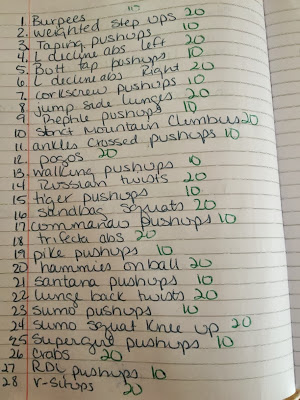 1. Burpees
2. weighted step ups 20
3. Taping pushups 10
4. L decline abs left 20
5. Butt tap pushups 10
6. L decline abs Right 20
7. corkscrew pushups 10
8. jump side lunges 20
9 Prephle pushups 10
10 Strict Mountain Climbers 20
11 ankles crossed pushups 10
12. pogos 20
13. walking pushups 10
14 Russian twists 20
15 tiger pushups 10
16 sandbag squats 20
17 commando pushups 10
18 trifecta abs 20
19 pike pushups 10
20 hammies on ball 20
21 santana pushups 10
22 lunge back twists 20
23 sumo pushups 10
24 sumo squat knee up 20
25 supergirl pushups 10
26 crabs 20
27 RDL pushups 10
28 V-situps 20